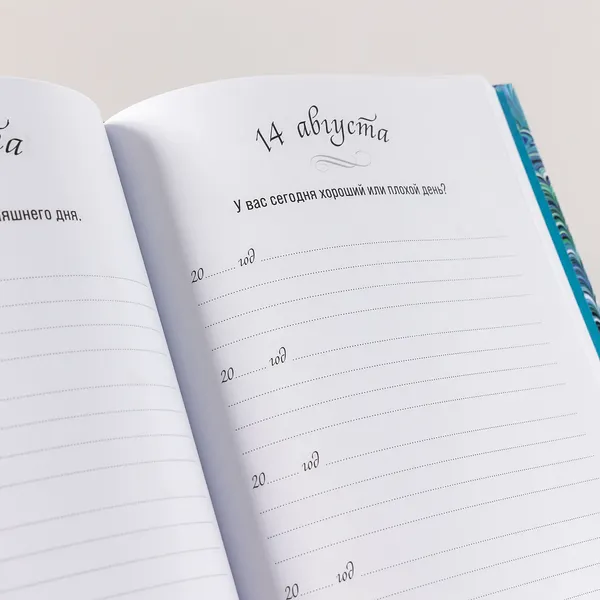 яшнего дня.
14 августа
У вас сегодня хороший или плохой день?
20...... год
20...... год
20...... год
20...... год